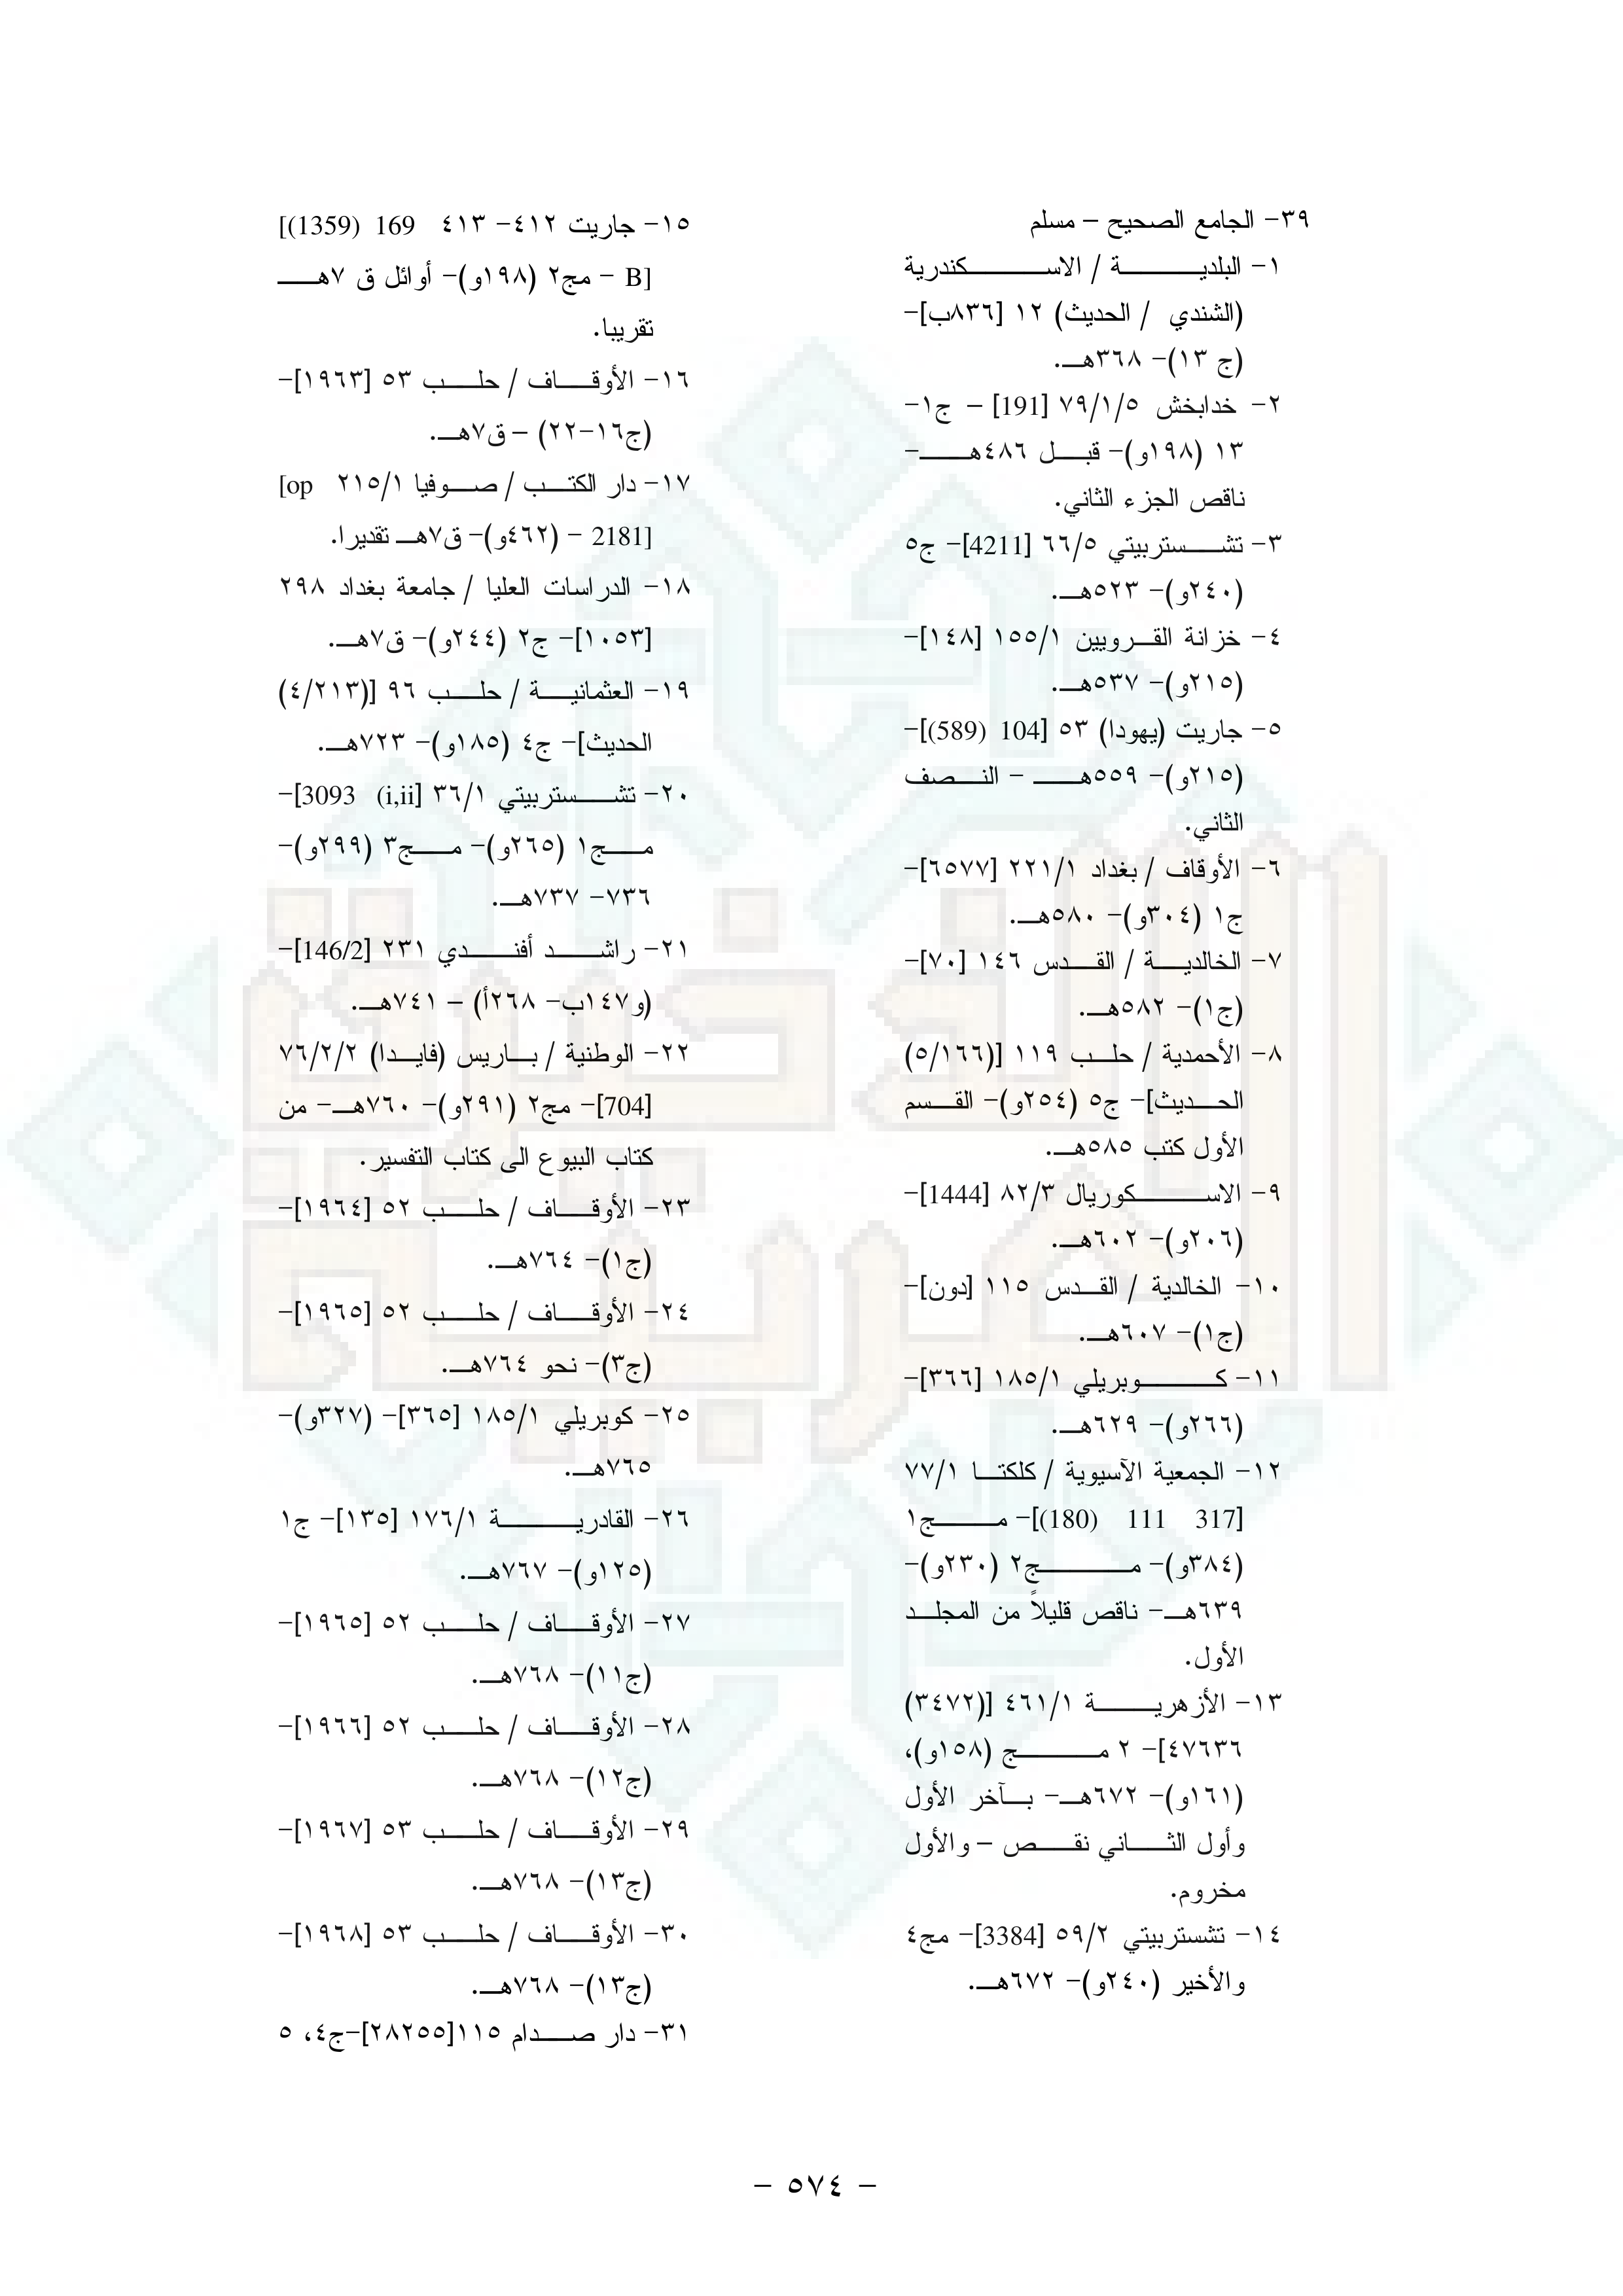 ٣٩- الجامع الصحيح – مسلم
١- البلدية / الاسكندرية
(الشندي / الحديث) ١٢ [٨٣٦ب]-
(ج ١٣)- ٣٦٨هـ.
٢- خدابخش ٧٩/١/٥ [191] – ج١-
١٣ (١٩٨و)- قبل ٤٨٦هـ-
ناقص الجزء الثاني.
٣- تشستربيتي ٦٦/٥ [4211]- ج٥
(٢٤٠و)- ٥٢٣هـ.
٤- خزانة القرويين ١٥٥/١ [١٤٨]-
(٢١٥و)- ٥٣٧هـ.
٥- جاريت (يهودا) ٥٣ [104 (589)]-
(٢١٥و)- ٥٥٩هـ – النصف
الثاني.
٦- الأوقاف / بغداد ٢٢١/١ [٦٥٧٧]-
ج١ (٣٠٤و)- ٥٨٠هـ.
٧- الخالدية / القدس ١٤٦ [٧٠]-
(ج١)- ٥٨٢هـ.
٨- الأحمدية / حلب ١١٩ [(٥/١٦٦)
الحديث]- ج٥ (٢٥٤و)- القسم
الأول كتب ٥٨٥هـ.
٩- الاسكوريال ٨٢/٣ [1444]-
(٢٠٦و)- ٦٠٢هـ.
١٠- الخالدية / القدس ١١٥ [دون]-
(ج١)- ٦٠٧هـ.
١١- كوبريلي ١٨٥/١ [٣٦٦]-
(٢٦٦و)- ٦٢٩هـ.
١٢- الجمعية الآسيوية / كلكتا ٧٧/١
[317 111 (180)]- مج١
(٣٨٤و)- مج٢ (٢٣٠و)-
٦٣٩هـ- ناقص قليلاً من المجلد
الأول.
١٣- الأزهرية ٤٦١/١ [(٣٤٧٢)
٤٧٦٣٦]- ٢ مج (١٥٨و)،
(١٦١و)- ٦٧٢هـ- بآخر الأول
وأول الثاني نقص – والأول
مخروم.
١٤- تشستربيتي ٥٩/٢ [3384]- مج٤
والأخير (٢٤٠و)- ٦٧٢هـ.
١٥- جاريت ٤١٢- ٤١٣ [(1359) 169
B] - مج٢ (١٩٨و)- أوائل ق ٧هـ
تقريبا.
١٦- الأوقاف / حلب ٥٣ [١٩٦٣]-
(ج١٦-٢٢) – ق٧هـ.
١٧- دار الكتب / صوفيا ٢١٥/١ [op
2181] - (٤٦٢و)- ق٧هـ تقديرا.
١٨- الدراسات العليا / جامعة بغداد ٢٩٨
[١٠٥٣]- ج٢ (٢٤٤و)- ق٧هـ.
١٩- العثمانية / حلب ٩٦ [(٤/٢١٣)
الحديث]- ج٤ (١٨٥و)- ٧٢٣هـ.
٢٠- تشستربيتي ٣٦/١ [3093 (i,ii)]-
مج١ (٢٦٥و)- مج٣ (٢٩٩و)-
٧٣٦- ٧٣٧هـ.
٢١- راشد أفندي ٢٣١ [146/2]-
(و١٤٧ب- ٢٦٨أ) – ٧٤١هـ.
٢٢- الوطنية / باريس (فايدا) ٧٦/٢/٢
[704]- مج٢ (٢٩١و)- ٧٦٠هـ- من
كتاب البيوع الى كتاب التفسير.
٢٣- الأوقاف / حلب ٥٢ [١٩٦٤]-
(ج١)- ٧٦٤هـ.
٢٤- الأوقاف / حلب ٥٢ [١٩٦٥]-
(ج٣)- نحو ٧٦٤هـ.
٢٥- كوبريلي ١٨٥/١ [٣٦٥]- (٣٢٧و)-
٧٦٥هـ.
٢٦- القادرية ١٧٦/١ [١٣٥]- ج١
(١٢٥و)- ٧٦٧هـ.
٢٧- الأوقاف / حلب ٥٢ [١٩٦٥]-
(ج١١)- ٧٦٨هـ.
٢٨- الأوقاف / حلب ٥٢ [١٩٦٦]-
(ج١٢)- ٧٦٨هـ.
٢٩- الأوقاف / حلب ٥٣ [١٩٦٧]-
(ج١٣)- ٧٦٨هـ.
٣٠- الأوقاف / حلب ٥٣ [١٩٦٨]-
(ج١٣)- ٧٦٨هـ.
٣١- دار صدام ١١٥[٢٨٢٥٥]-ج٤، ٥
- ٥٧٤ -